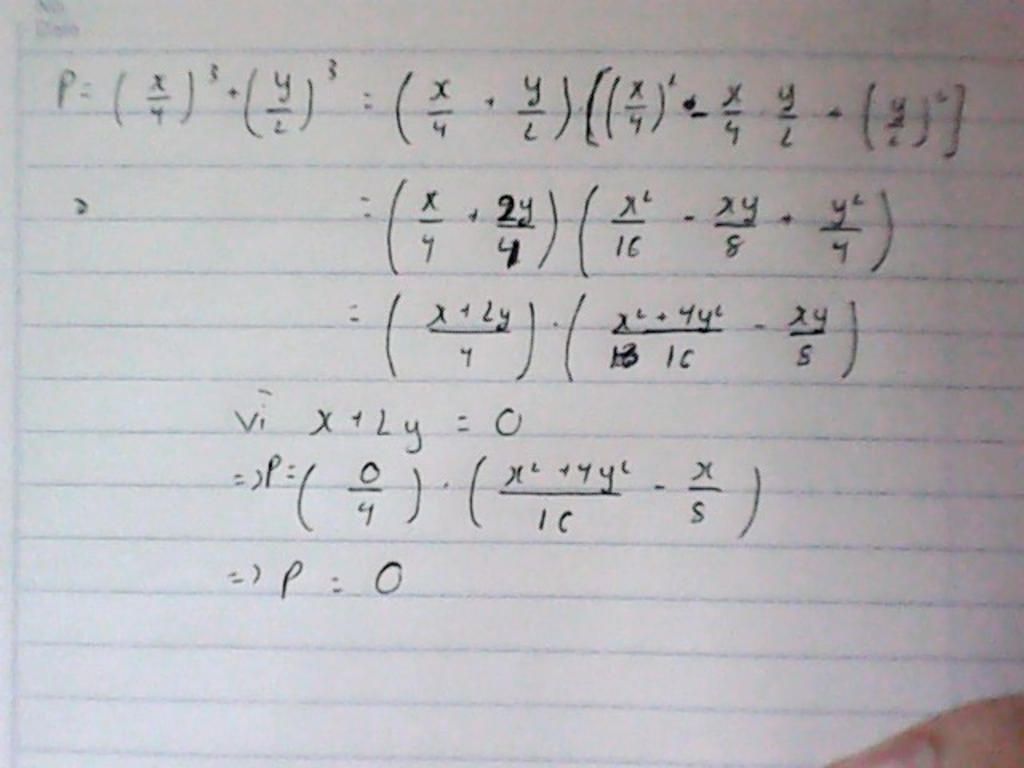 P = (x/4)³ + (y/2)³ = (x/4 + y/2) [(x/4)² - x/4 y/2 + (y/2)²]
= (x/4 + 2y/4) (x²/16 - xy/8 + y²/4)
= (x + 2y/4) . (x² + 4y²/16 - xy/8)
vì x + 2y = 0
=> P = (0/4) . (x² + 4y²/16 - x/8)
=> P = 0